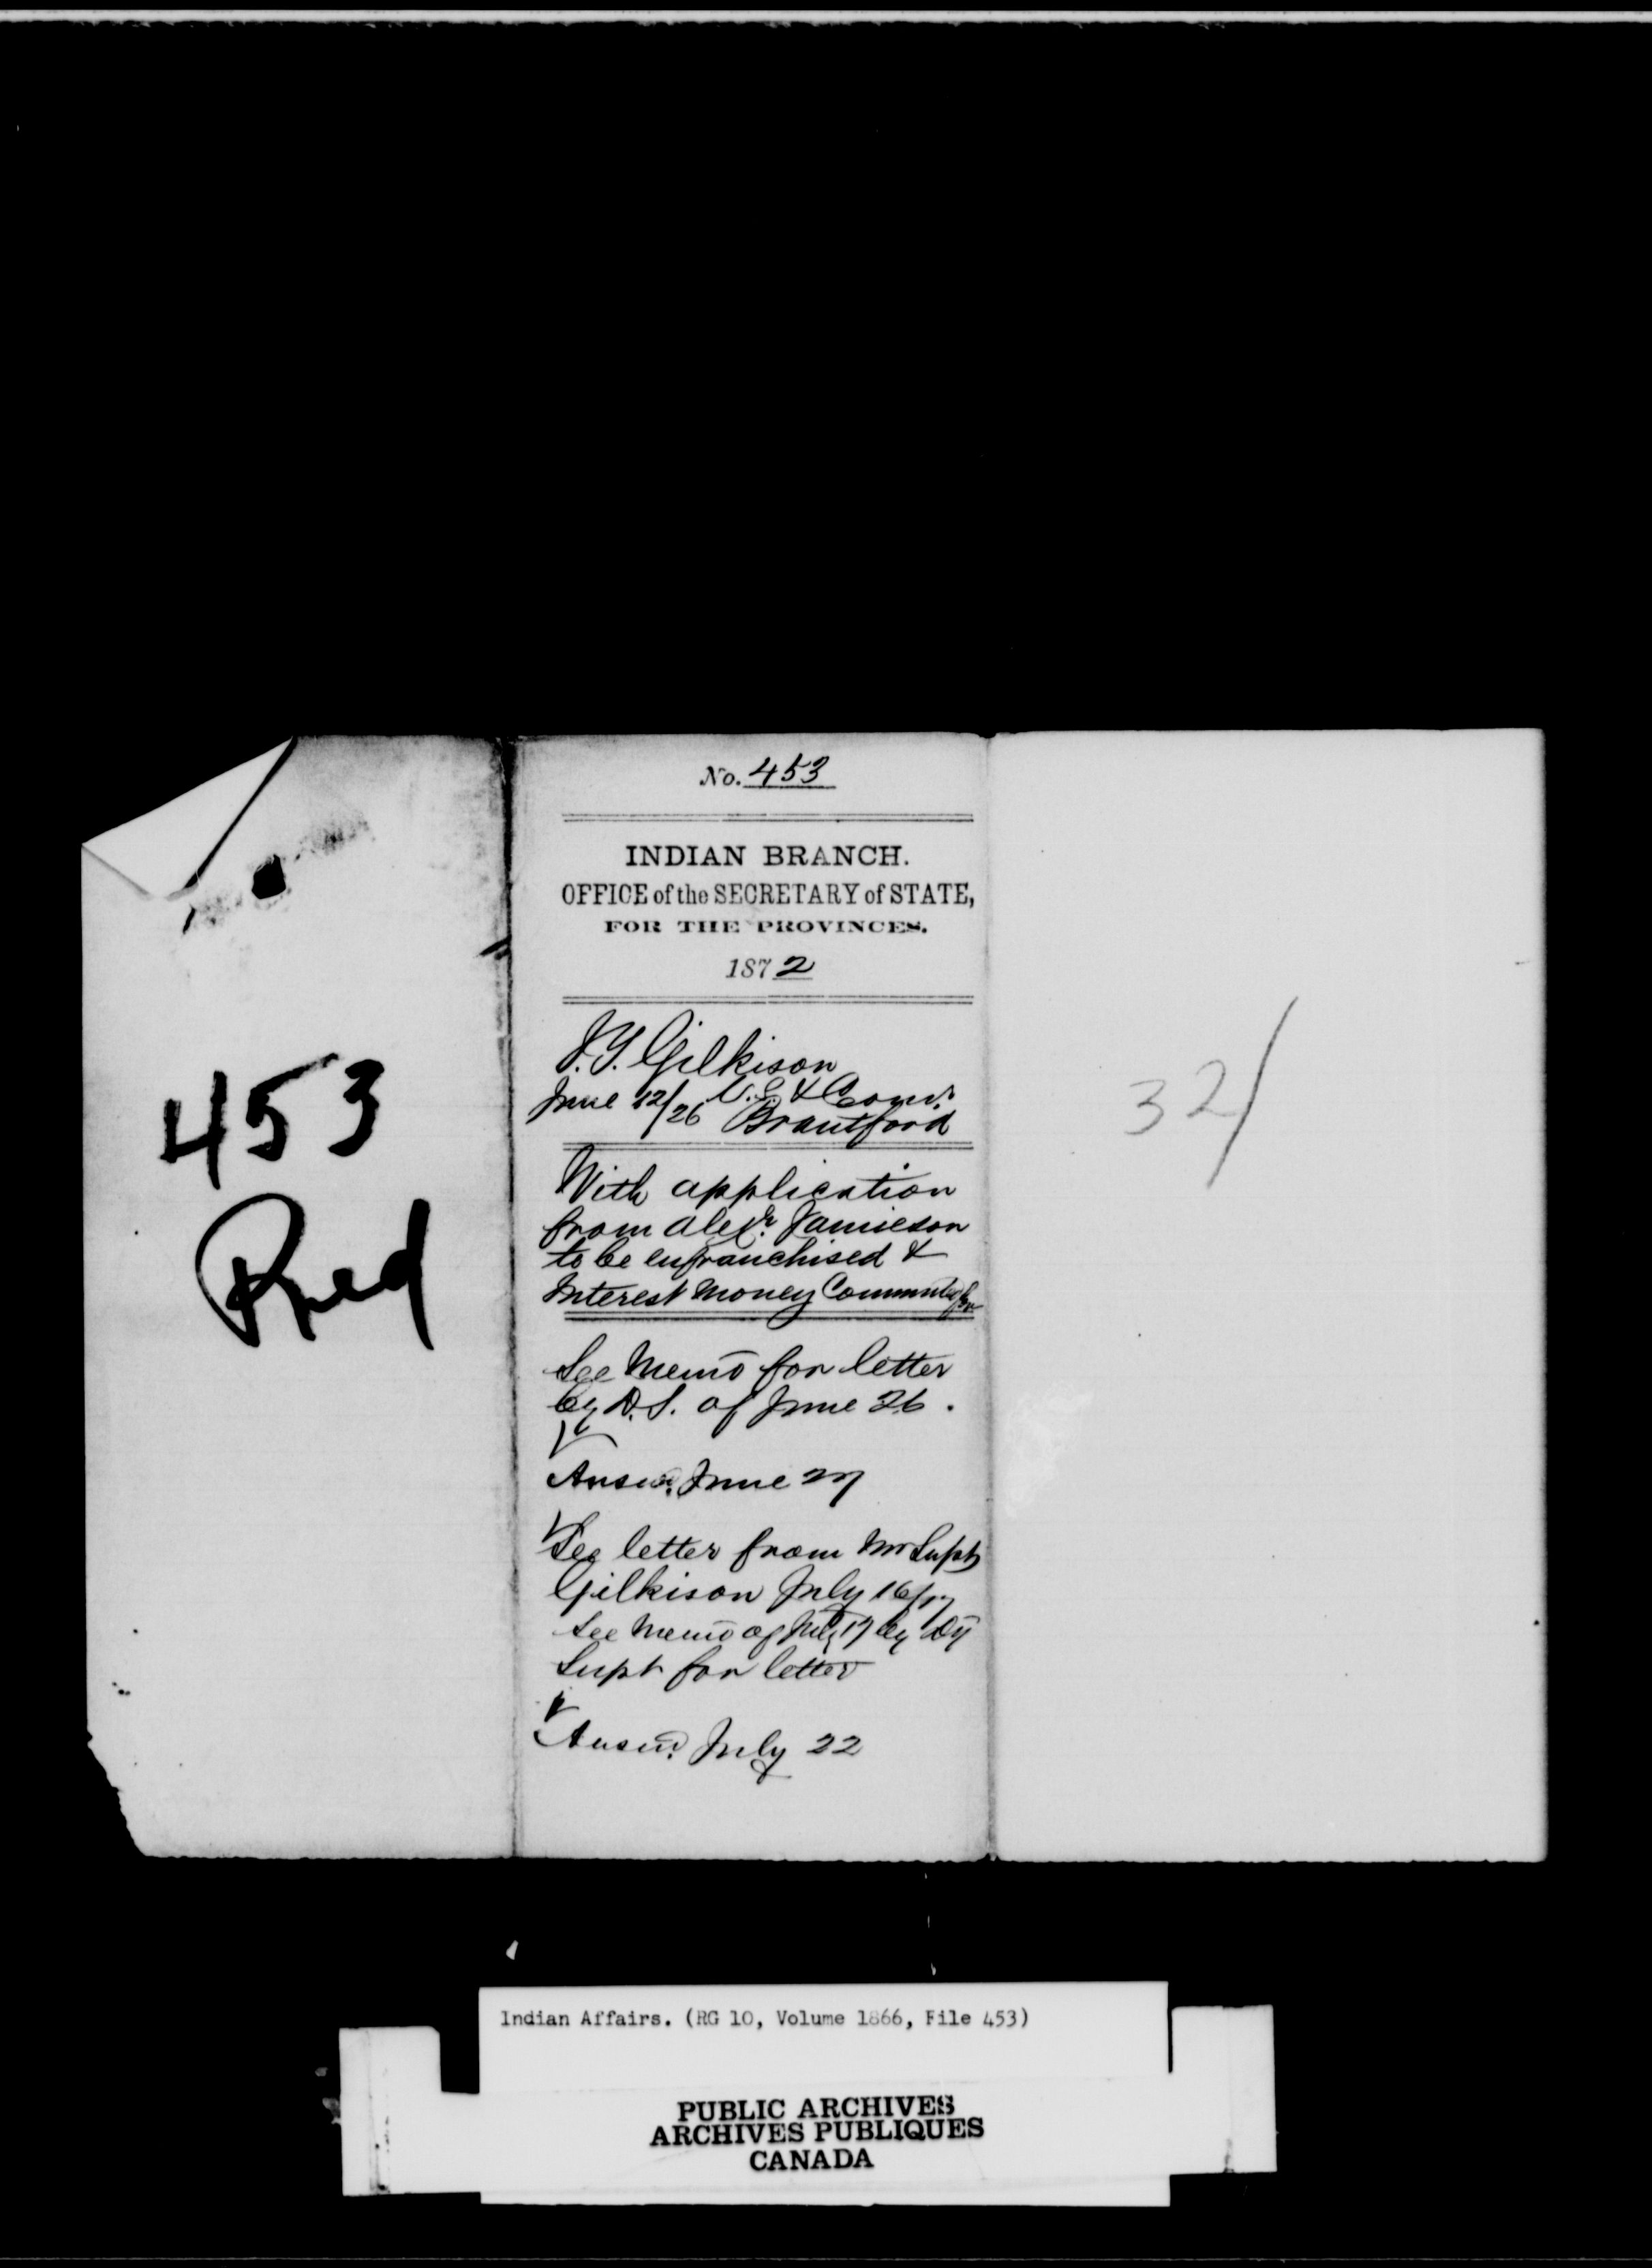 453
Red
No. 453
INDIAN BRANCH.
OFFICE of the SECRETARY of STATE,
FOR THE PROVINCES.
1872
J.T. Gilkison
June 12/26 V.S. & Comr.
Brantford
With application
from Alexr. Jamieson
to be enfranchised &
Interest Money Commuted
See Memo for letter
by D.S. of June 26.
Answd. June 27
See letter from Mr Supt
Gilkison July 16/17
See Memo of July 19 by Dy
Supt for letter
Answd. July 22
32/
Indian Affairs. (RG 10, Volume 1866, File 453)
PUBLIC ARCHIVES
ARCHIVES PUBLIQUES
CANADA